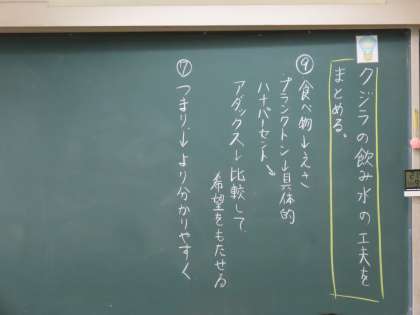 クジラの飲み水の工夫を
まとめる。
⑨食べ物→えさ
プランクトン→具体的
ハ十パーセント→
アダックス→比較して
希望をもたせる
⑦つまり→より分かりやすく